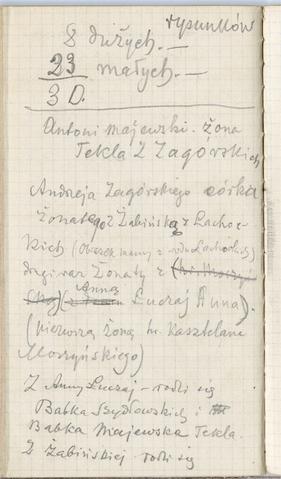 rysunków
8 dużych. —
23 małych. —
3 D.
Antoni Majewski. Żona
Tekla z Zagórskich
Andrzeja Zagórskiego córka
Żonatego z Żabińską z Lachoc-
kich (Obrazek mamy z rodu Lachockich)
drugi raz Żonaty z
Anną
Lucraj Anna).
(pierwszą żoną hr. Kasztelana
Moszyńskiego)
Z Anny Lucraj — rodzi się
Babka Szydłowskich i
Babka Majewska Tekla.
Z Żabińskiej rodzi się